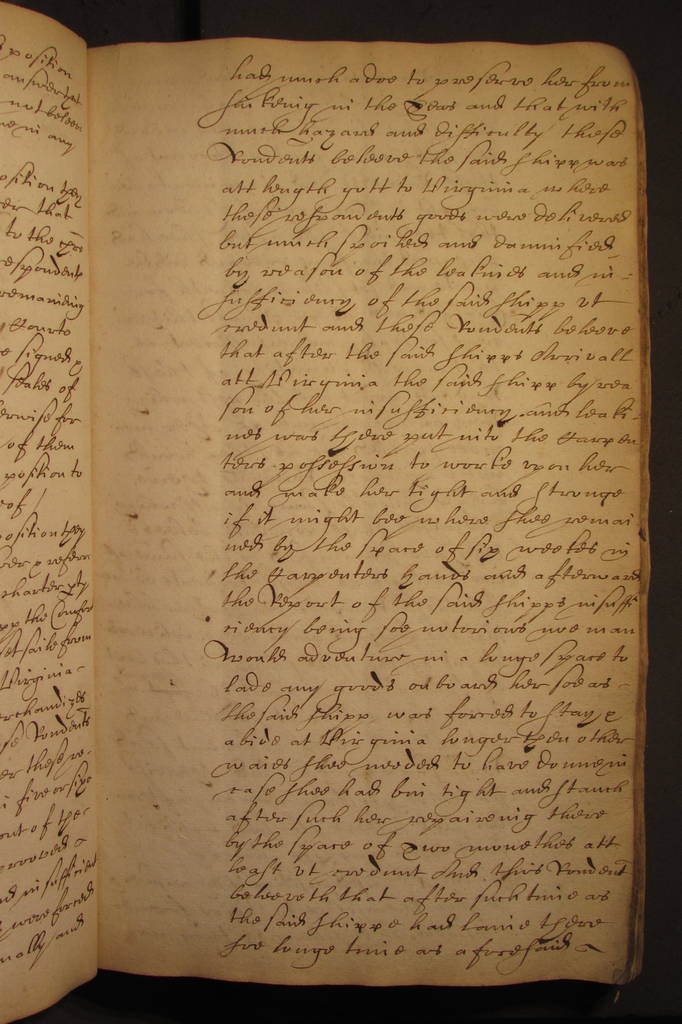 position
answer yt
not beleeve
me in any
position they
er that
to the
espondents
remaineing
Courte
e signed
seales of
erwise for
of them
position to
eof /
position they
ver preferr
charter pty
pp the Comfort
set saile from
Virginia -
erchandizes
se Rondents
er these re-
five or sixe
out of the
prooved
nd insufficient
were forced
nally and
had much adoe to preserve her from
sinkeing in the Seas and that with
much hazard and difficulty these
Rondents beleeve the said shipp was
att length gott to Virginia where
these respondents goods were delivered
but much spoiled and damnified
by reason of the leakines and in-
sufficiency of the said shipp vt
credunt and these Rondents beleeve
that after the said shipps Arrivall
att Virginia the said shipp by rea
son of her insufficiency and leaki-
nes was there put into the Carpen
ters possession to worke vpon her
and make her tight and stronge
if it might bee where shee remai
ned by the space of six weekes in
the Carpenters hands and afterward
the Report of the said shipps insuffi
ciency being soe notorious noe man
would adventure in a longe space to
lade any goods onboard her soe as -
the said shipp was forced to stay &
abide at Virginia longer then other
waies shee needed to have donne in
case shee had bin tight and stanch
after such her repaireing there
by the space of Two monethes att
least vt credunt And this Rondent
beleeveth that after such time as
the said shippe had laine there
soe longe time as aforesaid